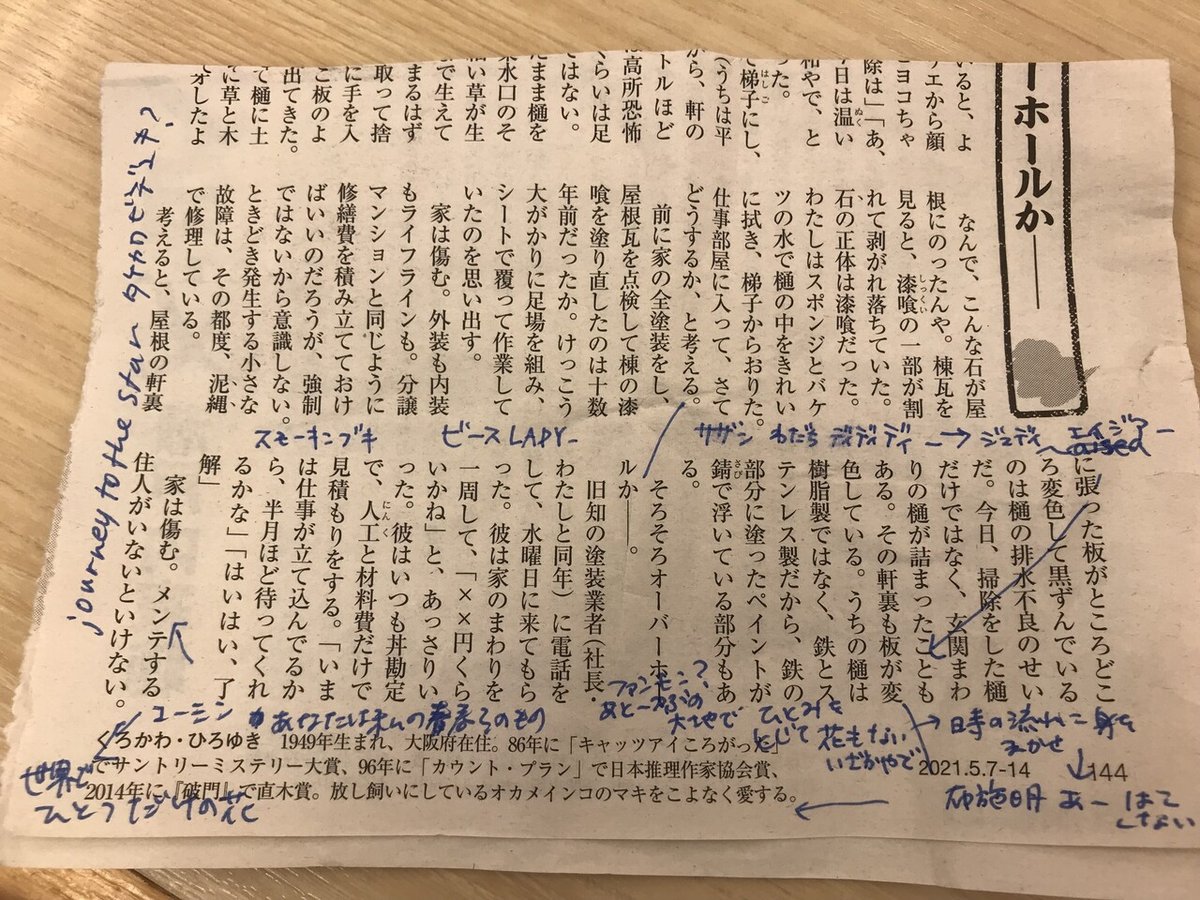 ーホールか――
いると、よ
エから顔
ヨコちゃ
除は」「あ、
日は温い
和やで、と
った。
で梯子にし、
（うちは平
ら、軒の
トルほど
は高所恐怖
くらいは足
ではない。
たまま樋を
水口のそ
い草が生
で生えて
まるはず
取って捨
に手を入
板のよ
出てきた。
て樋に土
に草と木
したよ
なんで、こんな石が屋
根にのったんや。棟瓦を
見ると、漆喰の一部が割
れて剥がれ落ちていた。
石の正体は漆喰だった。
わたしはスポンジとバケ
ツの水で樋の中をきれい
に拭き、梯子からおりた。
仕事部屋に入って、さて
どうするか、と考える。
前に家の全塗装をし、
屋根瓦を点検して棟の漆
喰を塗り直したのは十数
年前だったか。けっこう
大がかりに足場を組み、
シートで覆って作業して
いたのを思い出す。
家は傷む。外装も内装
もライフラインも。分譲
マンションと同じように
修繕費を積み立てておけ
ばいいのだろうが、強制
ではないから意識しない。
ときどき発生する小さな
故障は、その都度、泥縄
で修理している。
考えると、屋根の軒裏
に張った板がところどこ
ろ変色して黒ずんでいる
のは樋の排水不良のせい
だ。今日、掃除をした樋
だけではなく、玄関まわ
りの樋が詰まったことも
ある。その軒裏も板が変
色している。うちの樋は
樹脂製ではなく、鉄とス
テンレス製だから、鉄の
部分に塗ったペイントが
錆で浮いている部分もあ
る。
そろそろオーバーホー
ルか――。
旧知の塗装業者（社長・
わたしと同年）に電話を
して、水曜日に来てもら
った。彼は家のまわりを
一周して、「××円くら
いかね」と、あっさりい
った。彼はいつも丼勘定
で、人工と材料費だけで
見積もりをする。「いま
は仕事が立て込んでるか
ら、半月ほど待ってくれ
るかな」「はいはい、了
解」
家は傷む。メンテする
住人がいないといけない。
くろかわ・ひろゆき 1949年生まれ、大阪府在住。86年に「キャッツアイころがった」
でサントリーミステリー大賞、96年に「カウント・プラン」で日本推理作家協会賞、
2014年に『破門』で直木賞。放し飼いにしているオカメインコのマキをこよなく愛する。
2021.5.7-14 144
journey to the star
スモーキンブギ
ピース LADY
サザン わだち ディディディ → ジュディ エイジアー
ユーミン あなたは私の青春そのもの
ファンモン?
あとー つぶの
大地で
ひとみを
とじて
花もない
いざかやで
→ 時の流れに身を
まかせ
布施明 あー はてしない
世界で
ひとつだけの花